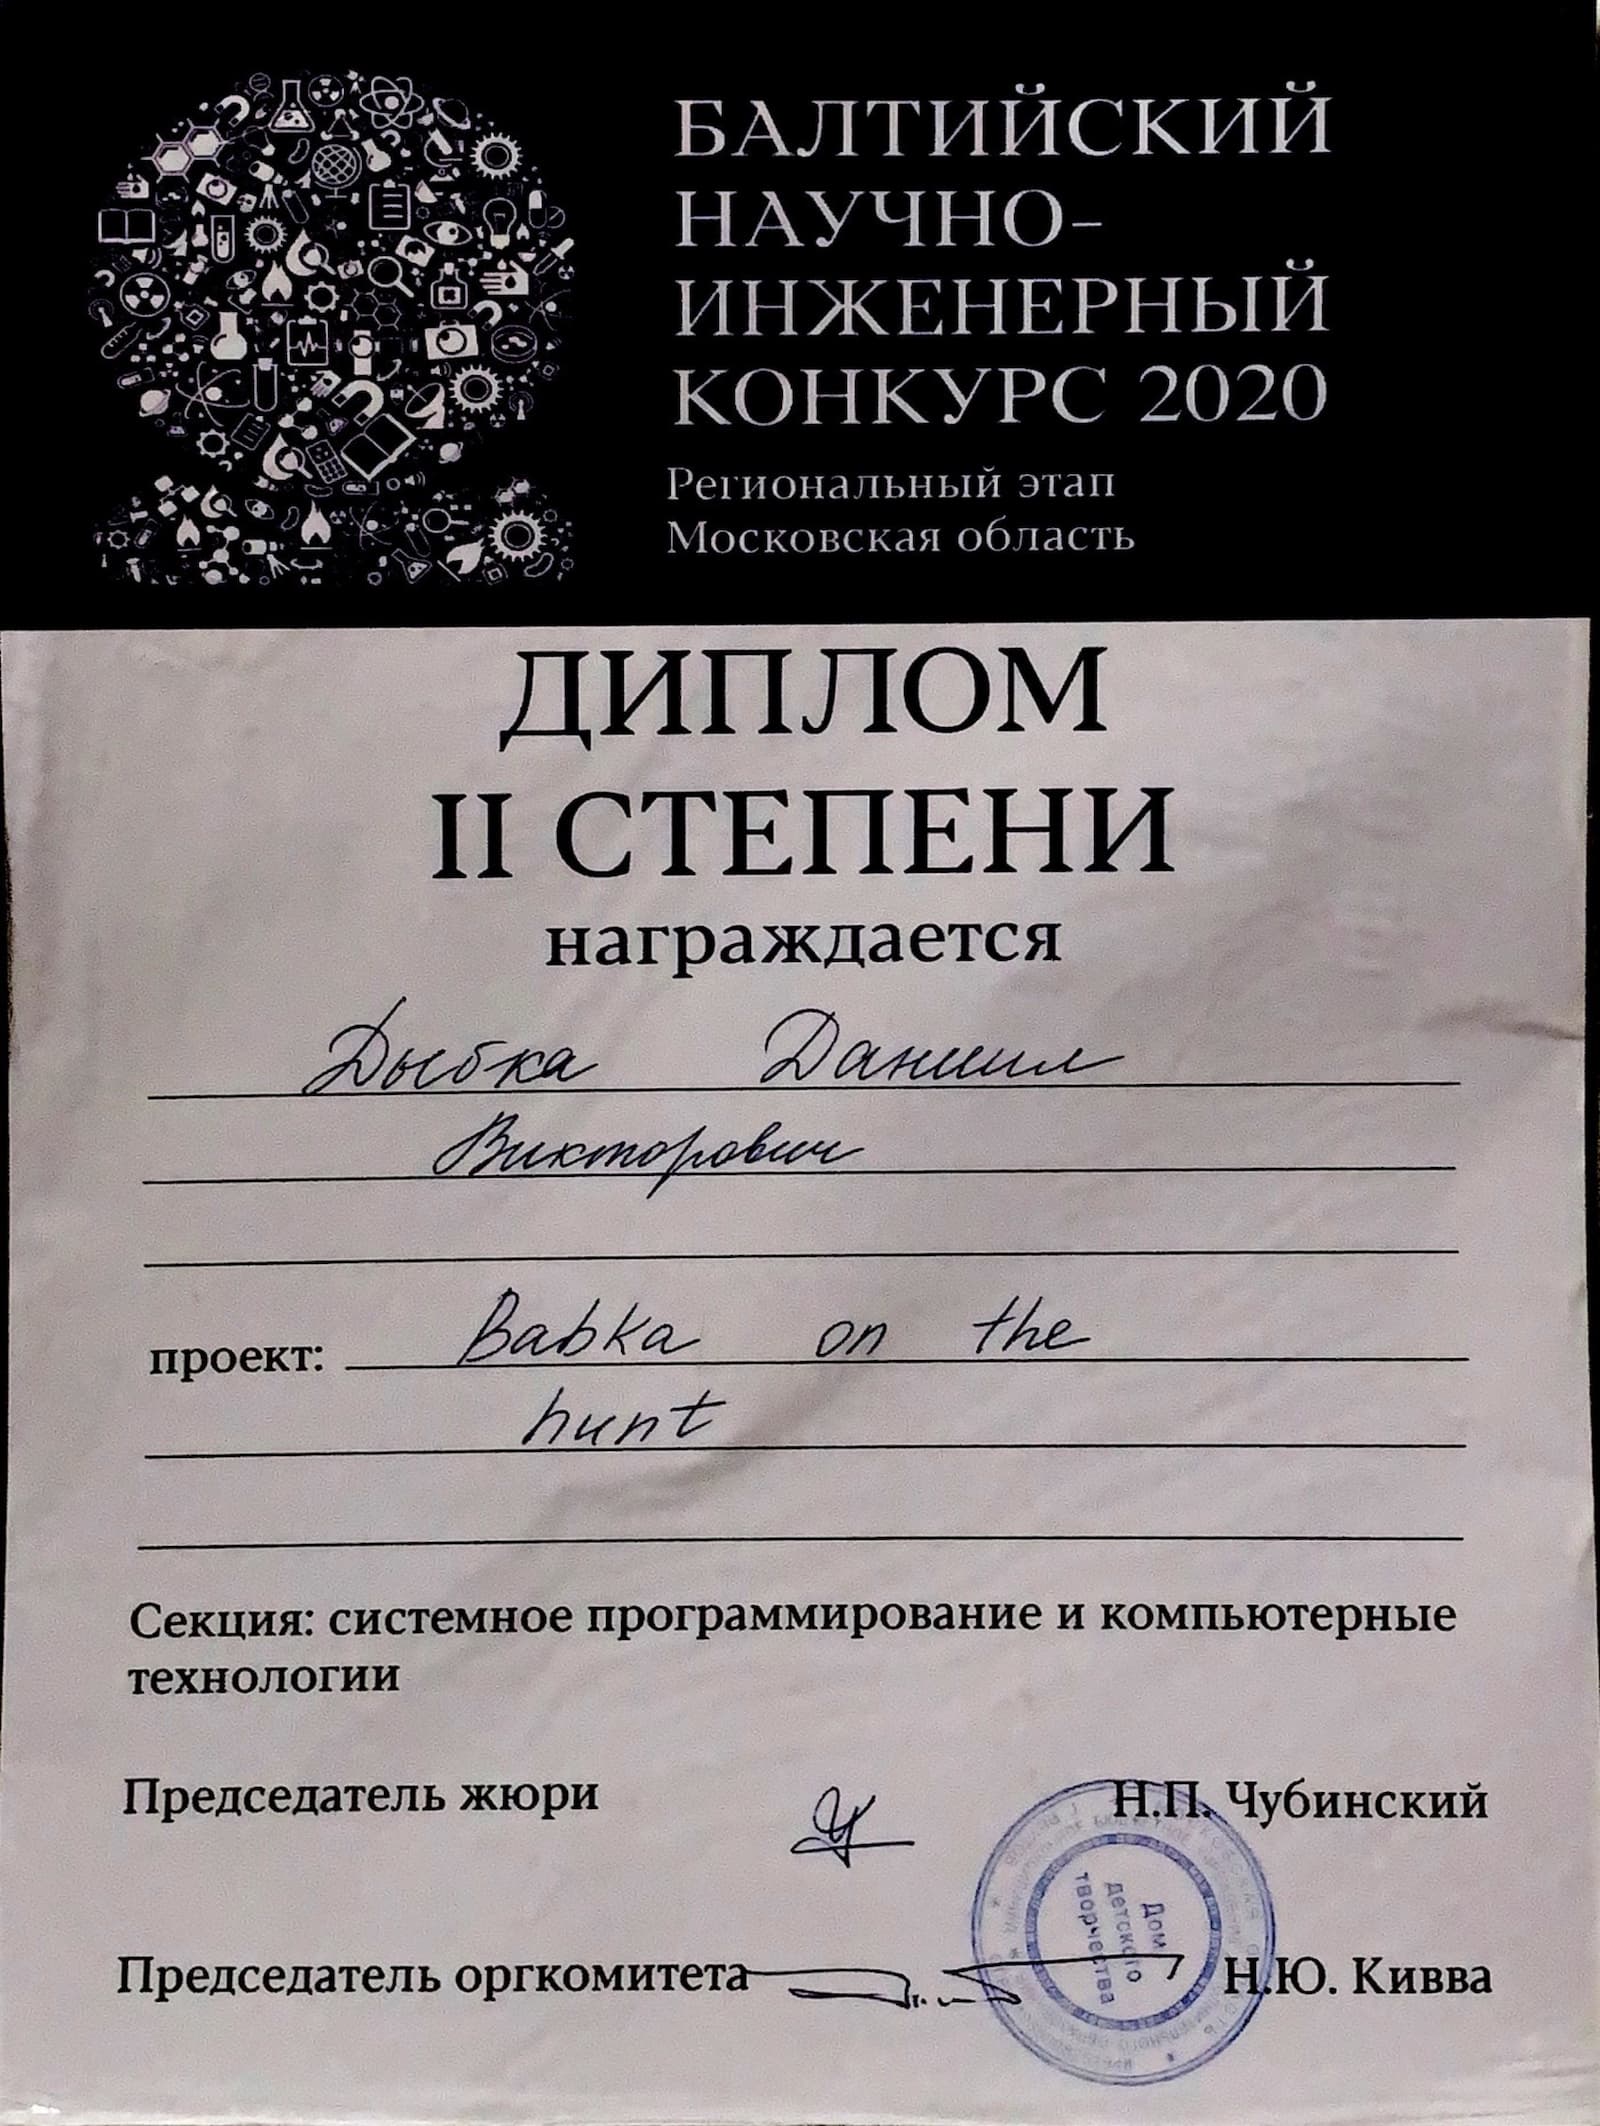 БАЛТИЙСКИЙ
НАУЧНО-
ИНЖЕНЕРНЫЙ
КОНКУРС 2020
Региональный этап
Московская область
ДИПЛОМ
II СТЕПЕНИ
награждается
Дыбка Даниил
Викторович
проект: Babka on the
hunt
Секция: системное программирование и компьютерные
технологии
Председатель жюри Н.П. Чубинский
Дом
детского
творчества
Председатель оргкомитета Н.Ю. Кивва